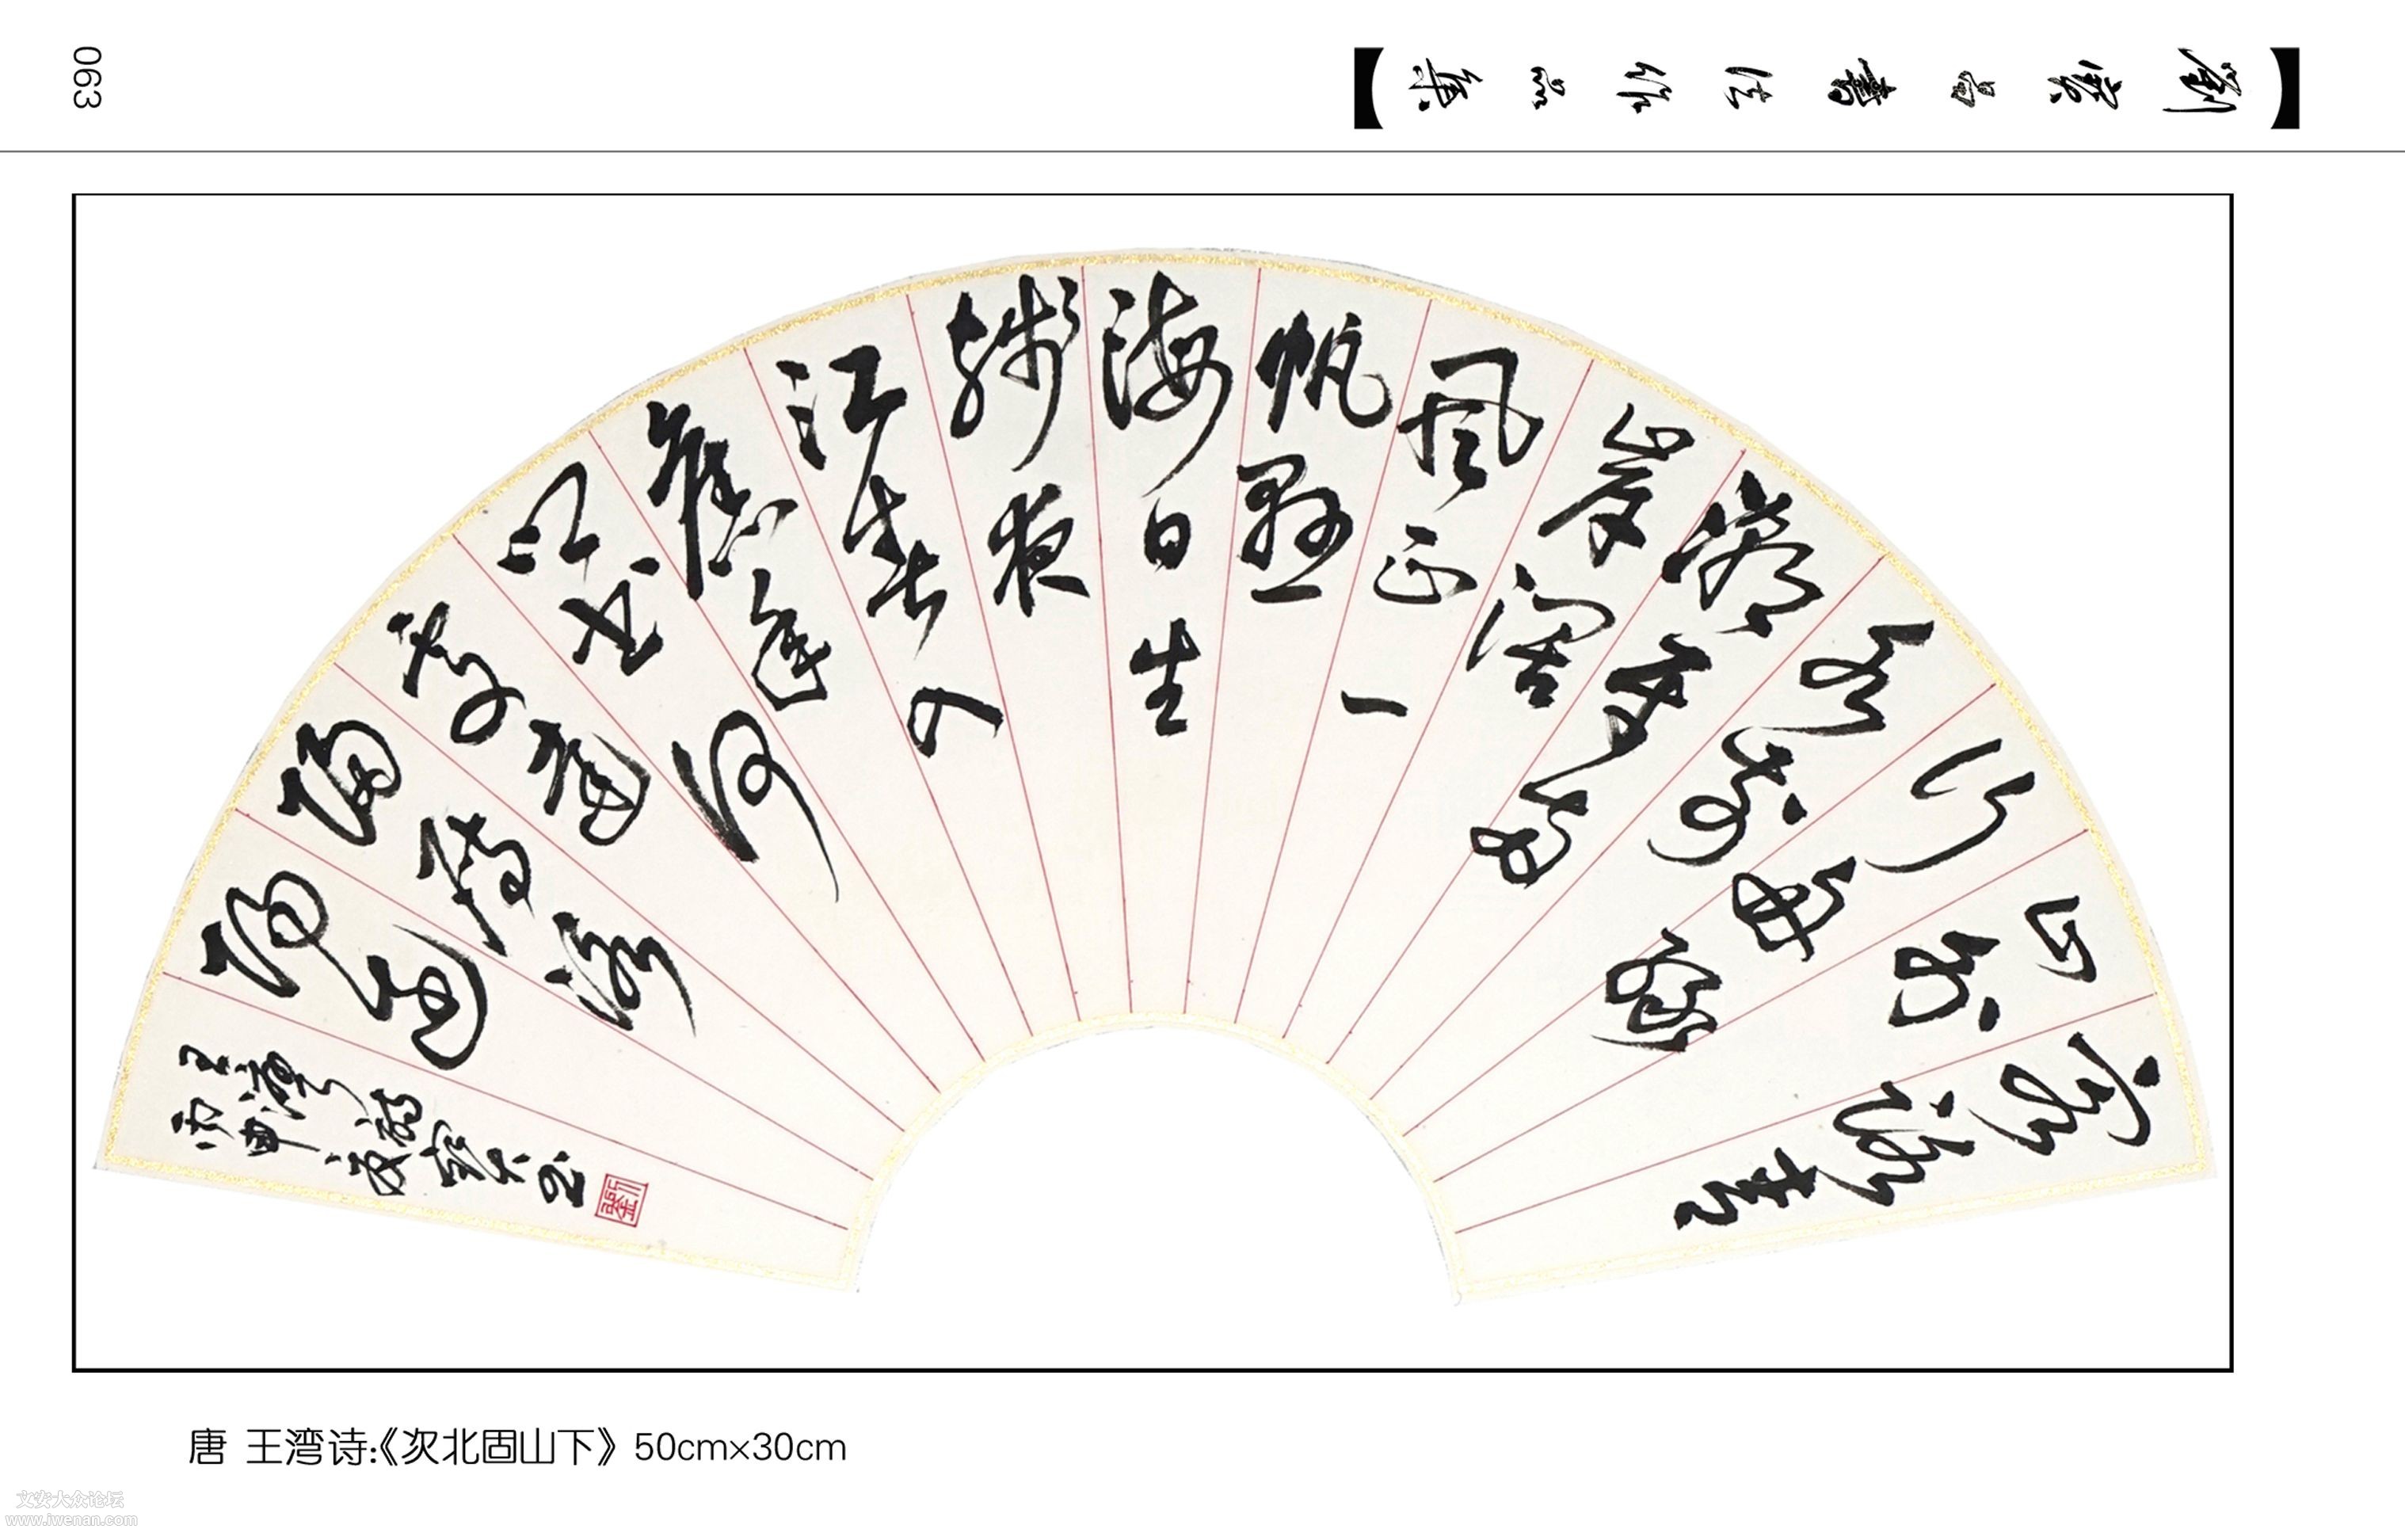 063
書法作品集
客路青
山外
行舟綠
水前
潮平兩
岸闊
風正一
帆懸
海日生
殘夜
江春入
舊年
鄉書何
處達
歸雁洛
陽邊
王灣詩
唐 王湾诗:《次北固山下》50cm×30cm
文安大众论坛
www.iwenan.com